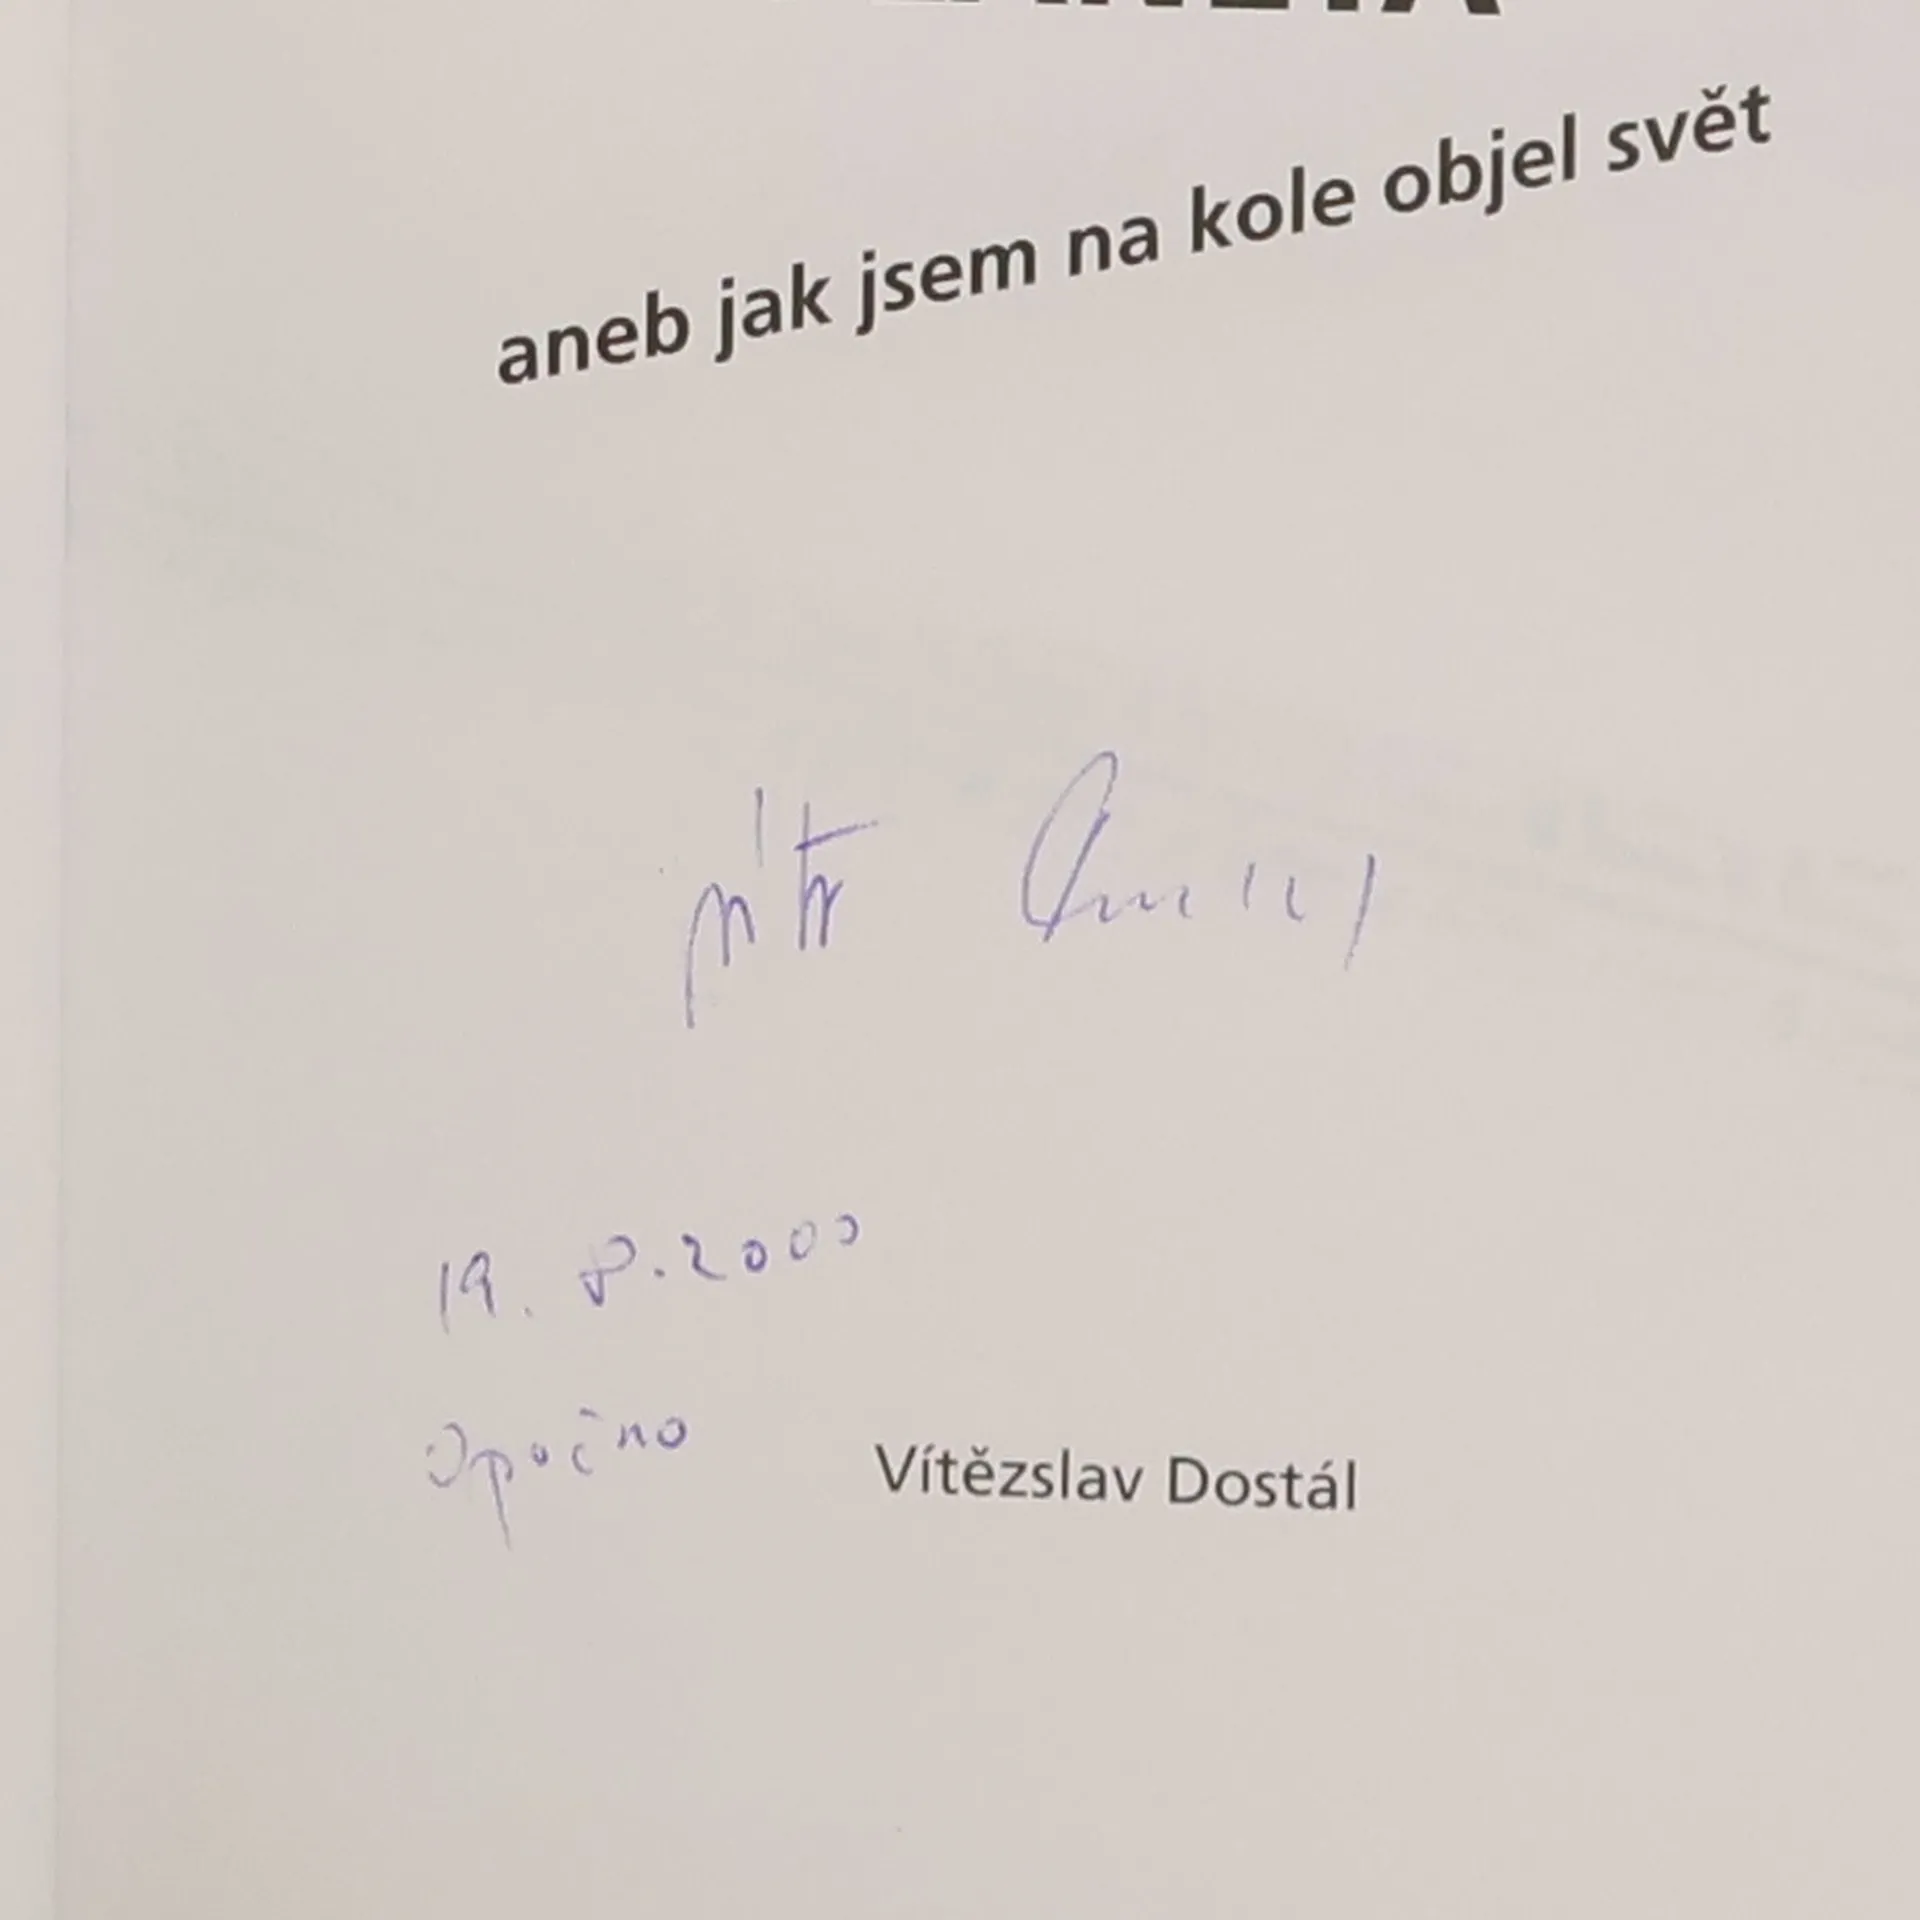 aneb jak jsem na kole objel svět
19. 8. 2000
Opočno
Vítězslav Dostál